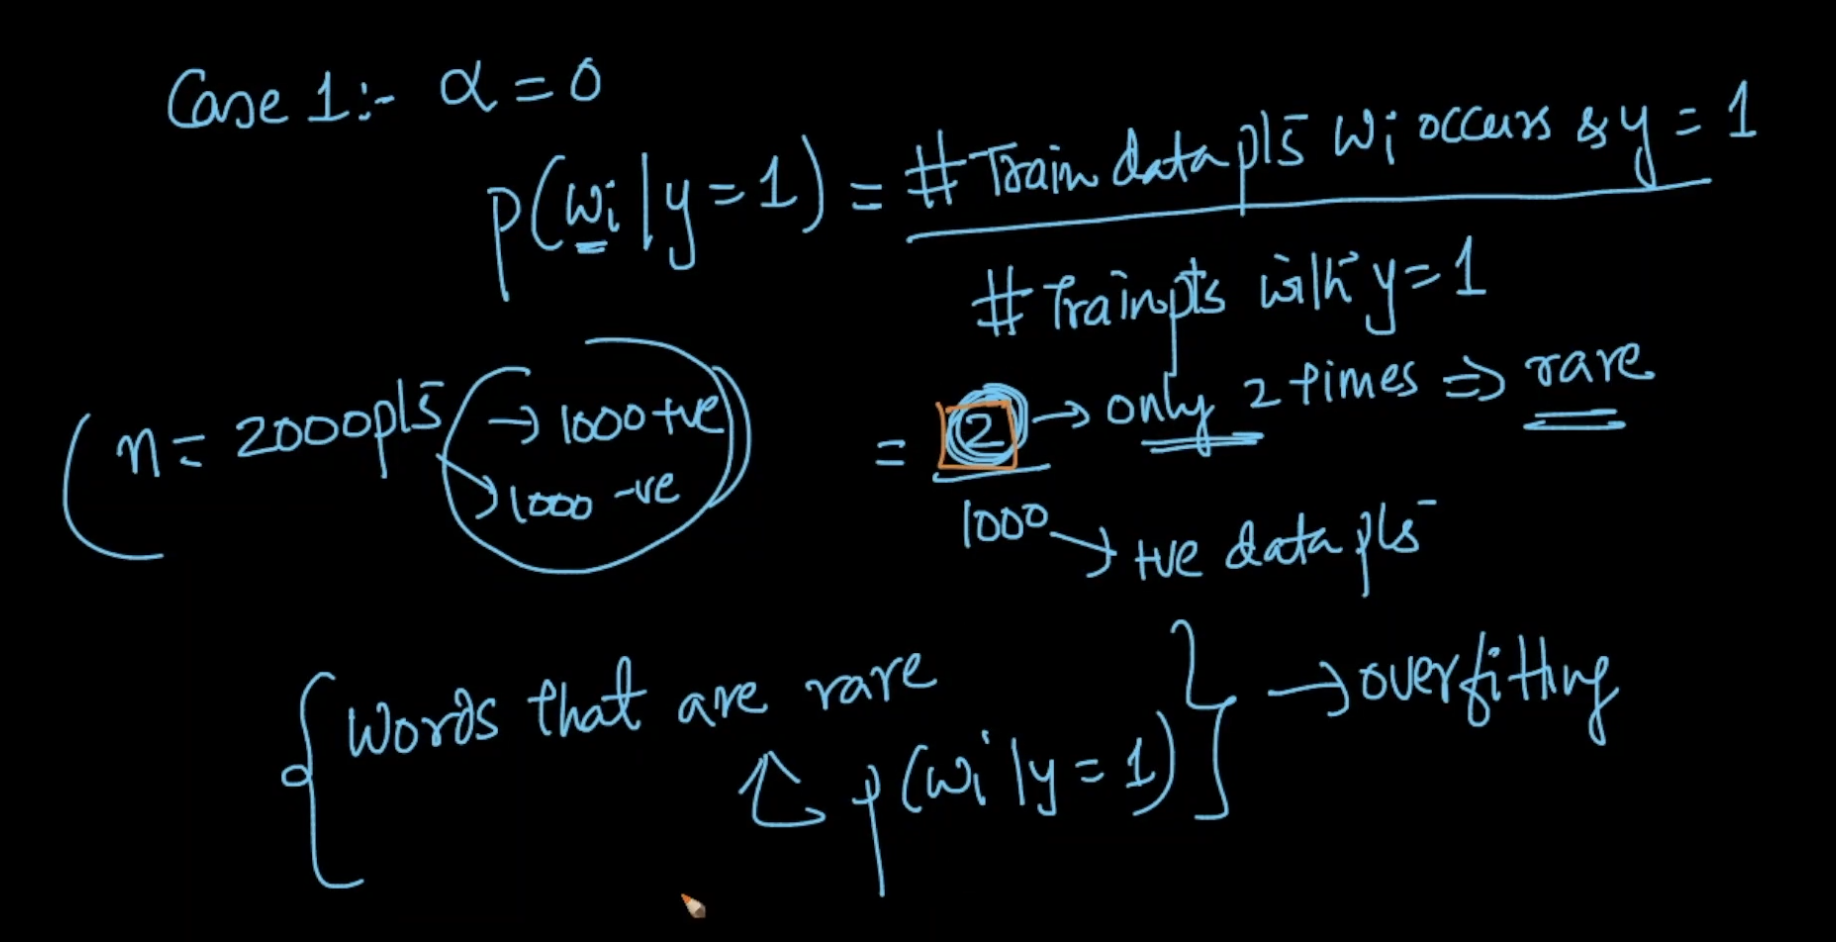 Case 1:- α = 0
p(wi | y = 1) = # Train data pts wi occurs & y = 1
# Train pts with y = 1
n = 2000 pts → 1000 +ve
→ 1000 -ve
= 2 → only 2 times ⇒ rare
1000 → +ve data pts
Words that are rare
p(wi | y = 1) → overfitting